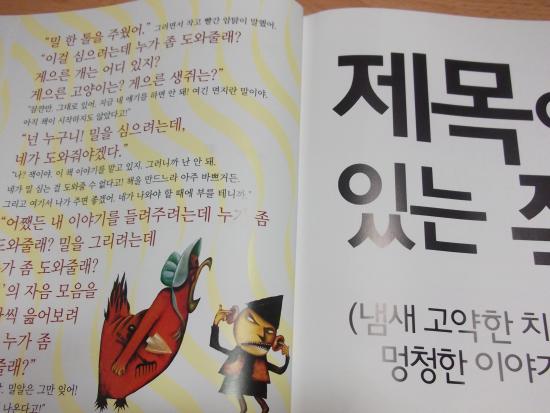 "밀 한 톨을 주웠어." 그러면서 작고 빨간 암탉이 말했어.
"이걸 심으려는데 누가 좀 도와줄래?
게으른 개는 어디 있지?
게으른 고양이는? 게으른 생쥐는?"
"잠깐만, 그대로 있어. 지금 네 얘기를 하면 안 돼! 여긴 면지란 말이야.
아직 책이 시작하지도 않았다고!"
"넌 누구니! 밀을 심으려는데,
네가 도와줘야겠다."
"나? 잭이야. 이 책 이야기를 맡고 있지. 그러니까 난 안 돼.
네가 밀 심는 걸 도와줄 수 없다고! 책을 만드느라 아주 바쁘거든.
그리고 여기서 나가 주면 좋겠어. 네가 나와야 할 때에 부를 테니까."
"어쨌든 내 이야기를 들려주려는데 누가 좀
도와줄래? 밀을 그리려는데
가 좀 도와줄래?
의 자음 모음을
씩 읊어보려
누가 좀
줄래?"
밀알은 그만 잊어!
나온다고!"
제목
있는
(냄새 고약한 치
멍청한 이야기